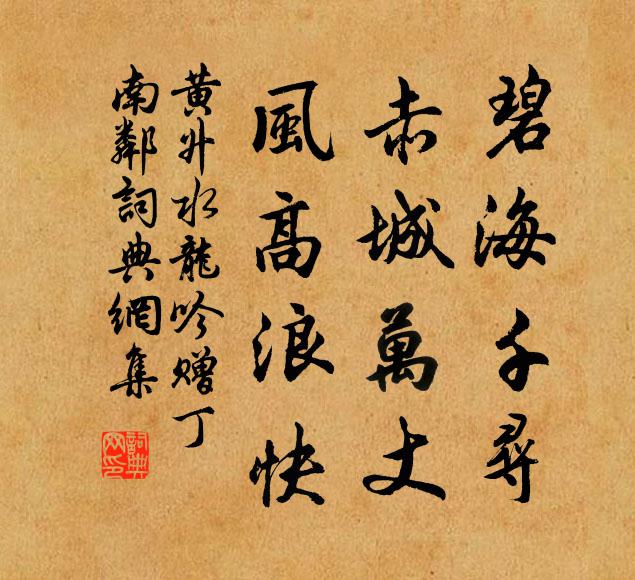 碧海千尋
赤城萬丈
風高浪快
黃升水龍吟贈丁
南鄰詞典網集
詞典網印